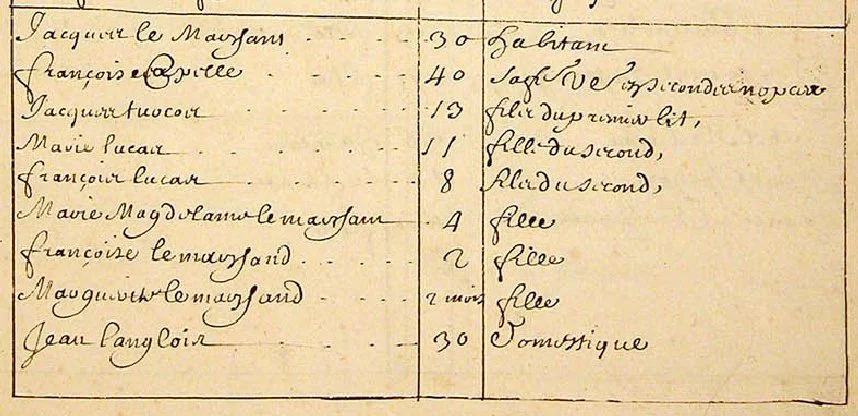 Jacques le Marchant 30 habitant
françoise Capelle 40 Sa fe Vefe en secondes nopces
Jacques turcot 13 fils du premier lit,
Marie lucas 11 fille du second,
françois lucas 8 fils du second,
Marie Magdelainne le marchant 4 fille
françoise le marchand 2 fille
Marguerite le marchand 2 mois fille
Jean langlois 30 Domestique